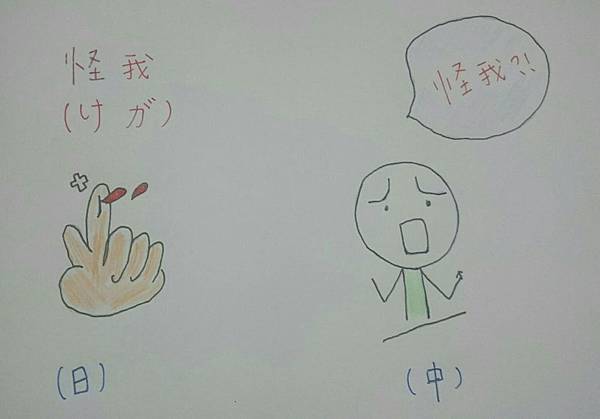 怪我
(けが)
怪我?!
(日)
(中)